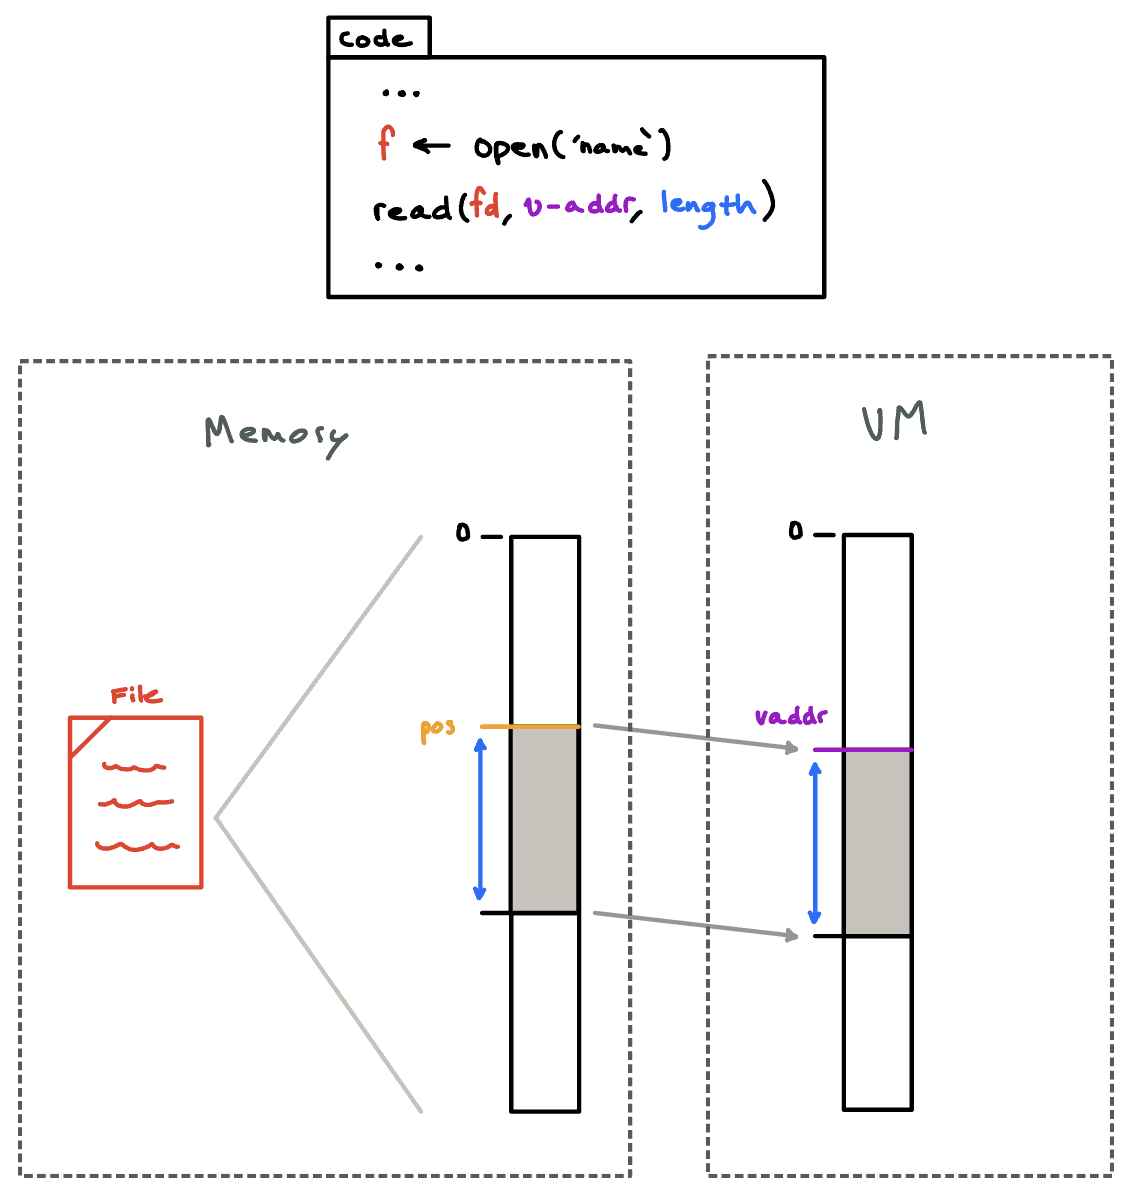 code
...
f ← open('name')
read(fd, v-addr, length)
...
Memory
VM
0
0
File
pos
vaddr